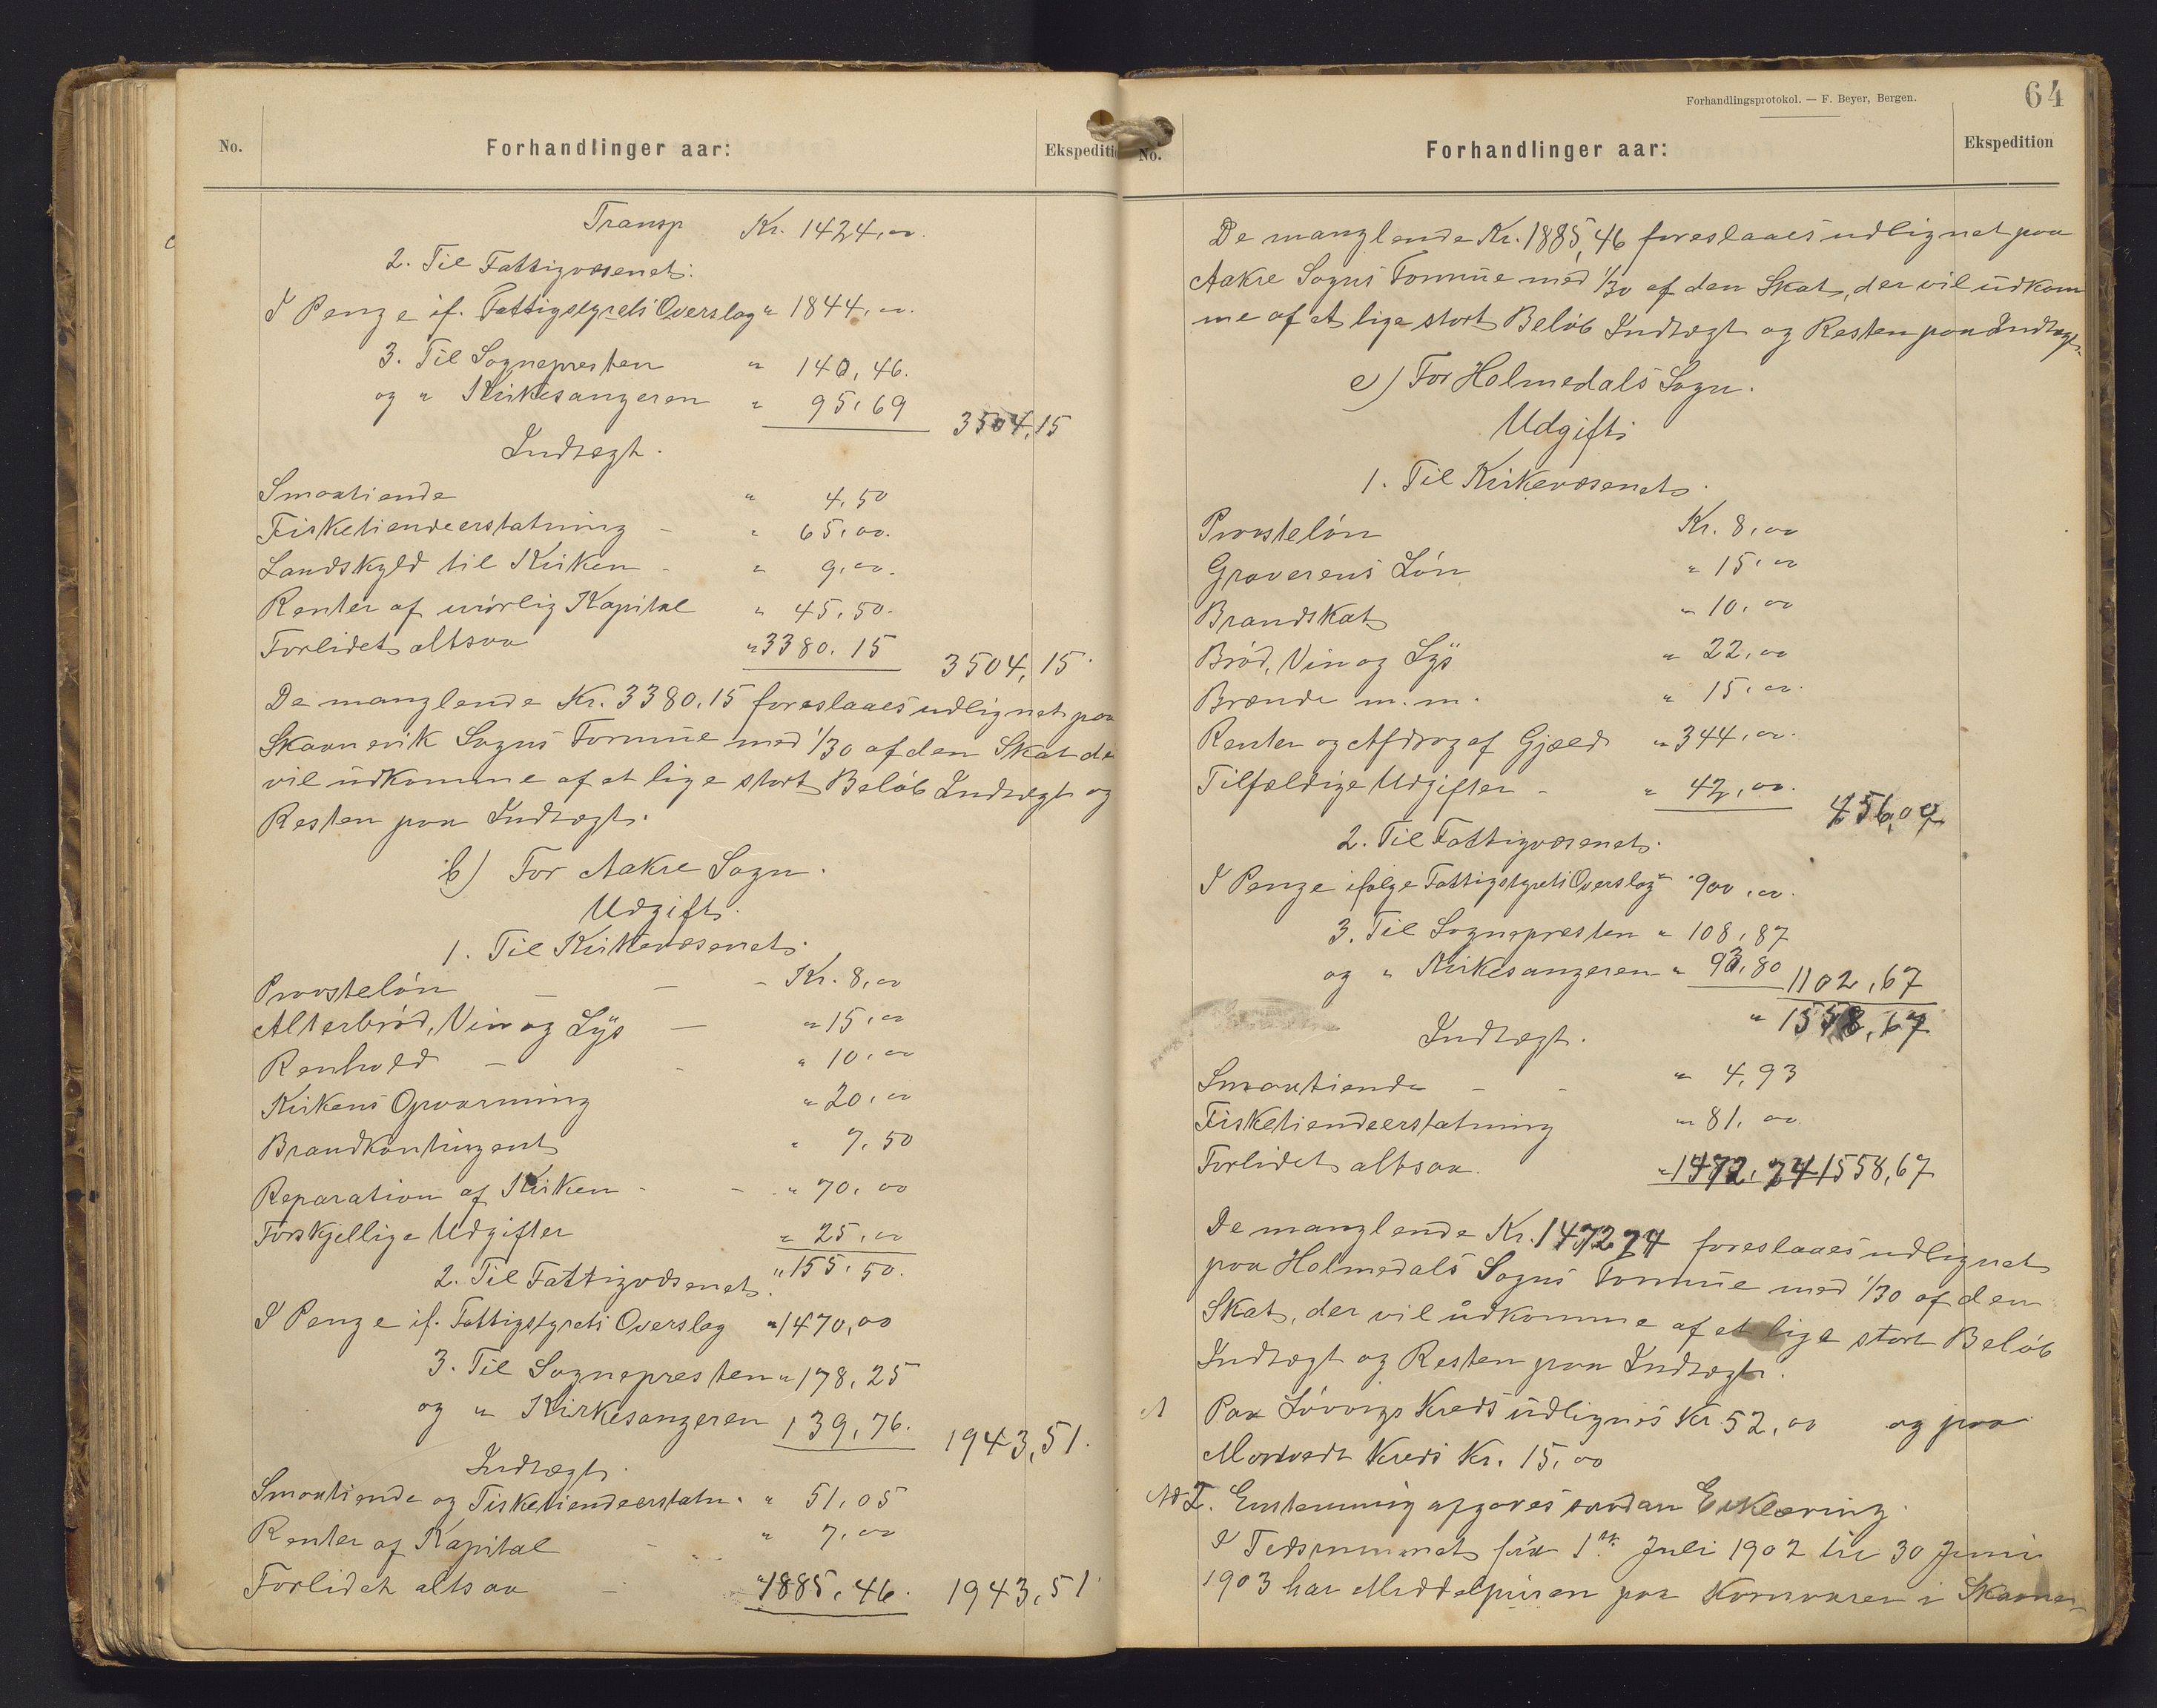 No.
Forhandlinger aar:
Ekspediti
Transp Kr. 1424,00.
2. Til Fattigvæsenet:
I Penge if. Fattigstyrets Overslag " 1844,00.
3. Til Sognepresten " 140,46.
og " Kirkesangeren " 95,69 3504,15
Indtægt.
Smaatiende " 4,50
Fisketiendeerstatning - " 65,00.
Landskyld til Kirken - " 9,00.
Renter af urørlig Kapital " 45,50.
Forlidet altsaa " 3380.15 3504,15.
De manglende Kr. 3380,15 foreslaaes udlignet paa
Skaanevik Sogns Formue med 1/30 af den Skat de
vil udkomme af et lige stort Beløb Indtægt og
Resten paa Indtægt.
b) For Aakre Sogn.
Udgift.
1. Til Kirkevæsenet.
Provsteløn - - - Kr. 8,00
Alterbrød, Vin og Lys - " 15,00
Renhold - - " 10,00
Kirkens Opvarming " 20,00
Brandkontingent " 7,50
Reparation af Kirken - - " 70,00
Forskjellige Udgifter " 25,00
" 155,50.
2. Til Fattigvæsenet.
I Penge if. Fattigstyrets Overslag " 1470,00
3. Til Sognepresten " 178,25
og " Kirkesangeren 139,76. 1943,51.
Indtægt.
Smaatiende og Fisketiendeerstatn. " 51,05
Renter af Kapital - " 7,00
Forlidet altsaa - " 1885,46. 1943,51.
Forhandlingsprotokol. — F. Beyer, Bergen.
64
No.
Forhandlinger aar:
Ekspedition
De manglende Kr. 1885,46 foreslaaes udlignet paa
Aakre Sogns Formue med 1/30 af den Skat, der vil udkom
me af et lige stort Beløb Indtægt og Resten paa Indtægt.
c) For Holmedals Sogn.
Udgift
1. Til Kirkevæsenet.
Provsteløn Kr. 8,00
Graverens Løn " 15,00
Brandskat " 10,00
Brød, Vin og Lys " 22,00
Brænde m.m. " 15,00.
Renter og Afdrag af Gjæld " 344,00.
Tilfældige Udgifter - " 42,00. 456,00
2. Til Fattigvæsenet.
I Penge ifølge Fattigstyrets Overslag " 900,00.
3. Til Sognepresten " 108,87
og " Kirkesangeren " 93,80 1102,67
" 1558,67
Indtægt.
Smaatiende - - " 4,93
Fisketiendeerstatning " 81,00
Forlidet altsaa. " 1472,74 1558,67
De manglende Kr. 1472 74 foreslaaes udlignet
paa Holmedals Sogns Formue med 1/30 af den
Skat, der vil udkomme af et lige stort Beløb
Indtægt og Resten paa Indtægt.
Paa Løvvigs Kreds udlignes Kr. 52,00 og paa
Kreds Kr. 15,00
Ad 2. Enstemmig afgaves saadan Erklæring.
I Tidsrummet fra 1ste Juli 1902 til 30 Juni
1903 har Middelprisen paa Kornvarer i Skaane-